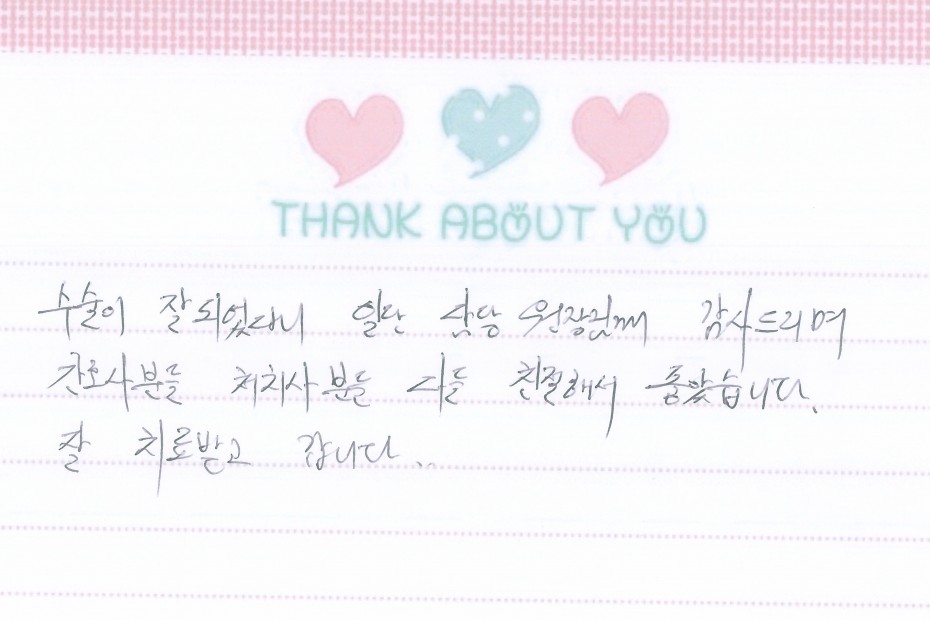 THANK ABOUT YOU
수술이 잘 되었다니 일단 담당 원장님께 감사드리며
간호사분들 처치사분들 다들 친절해서 좋았습니다.
잘 치료받고 갑니다..